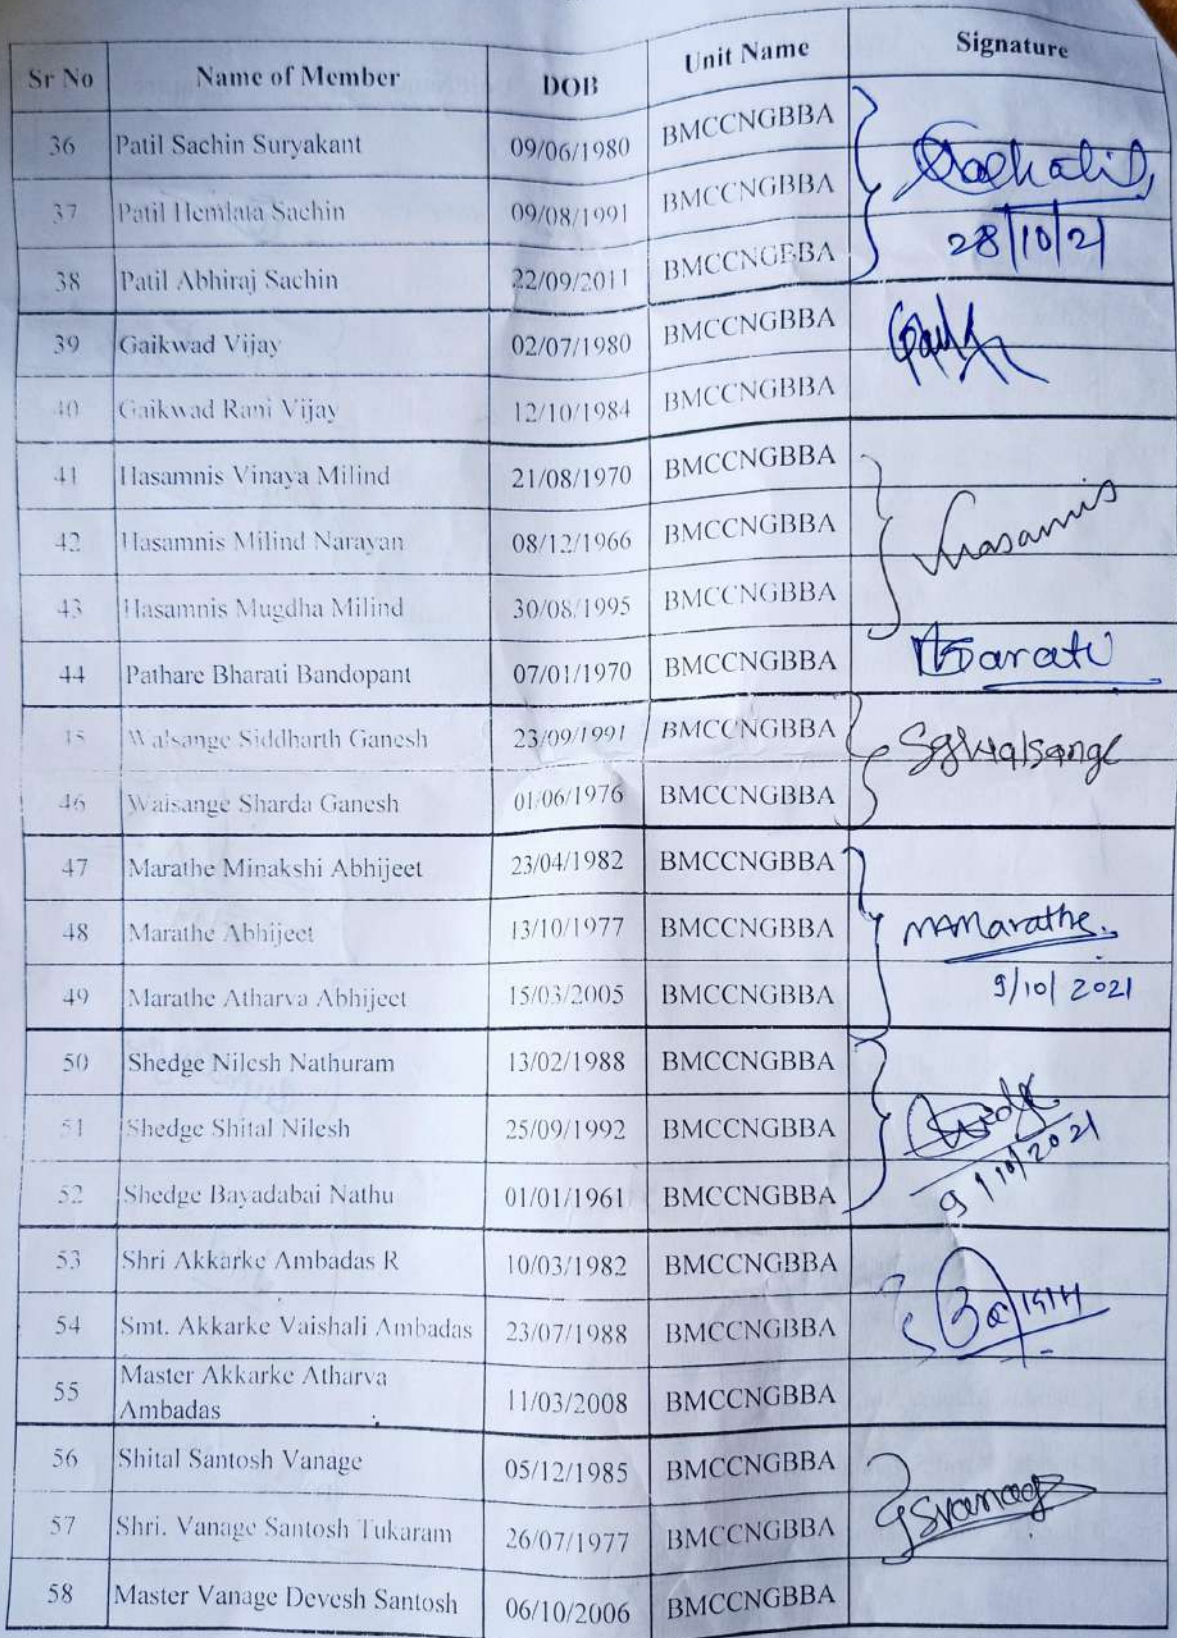 Sr No Name of Member DOB Unit Name Signature
36 Patil Sachin Suryakant 09/06/1980 BMCCNGBBA
37 Patil Hemlata Sachin 09/08/1991 BMCCNGBBA
28/10/21
38 Patil Abhiraj Sachin 22/09/2011 BMCCNGBBA
39 Gaikwad Vijay 02/07/1980 BMCCNGBBA
40 Gaikwad Rani Vijay 12/10/1984 BMCCNGBBA
41 Hasamnis Vinaya Milind 21/08/1970 BMCCNGBBA
42 Hasamnis Milind Narayan 08/12/1966 BMCCNGBBA
43 Hasamnis Mugdha Milind 30/08/1995 BMCCNGBBA
44 Pathare Bharati Bandopant 07/01/1970 BMCCNGBBA
45 Walsange Siddharth Ganesh 23/09/1991 BMCCNGBBA SgWalsange
46 Walsange Sharda Ganesh 01/06/1976 BMCCNGBBA
47 Marathe Minakshi Abhijeet 23/04/1982 BMCCNGBBA
48 Marathe Abhijeet 13/10/1977 BMCCNGBBA MAMarathe.
49 Marathe Atharva Abhijeet 15/03/2005 BMCCNGBBA 9/10/2021
50 Shedge Nilesh Nathuram 13/02/1988 BMCCNGBBA
51 Shedge Shital Nilesh 25/09/1992 BMCCNGBBA
52 Shedge Bayadabai Nathu 01/01/1961 BMCCNGBBA 9/10/2021
53 Shri Akkarke Ambadas R 10/03/1982 BMCCNGBBA
54 Smt. Akkarke Vaishali Ambadas 23/07/1988 BMCCNGBBA
55 Master Akkarke Atharva
Ambadas 11/03/2008 BMCCNGBBA
56 Shital Santosh Vanage 05/12/1985 BMCCNGBBA
57 Shri. Vanage Santosh Tukaram 26/07/1977 BMCCNGBBA
58 Master Vanage Devesh Santosh 06/10/2006 BMCCNGBBA